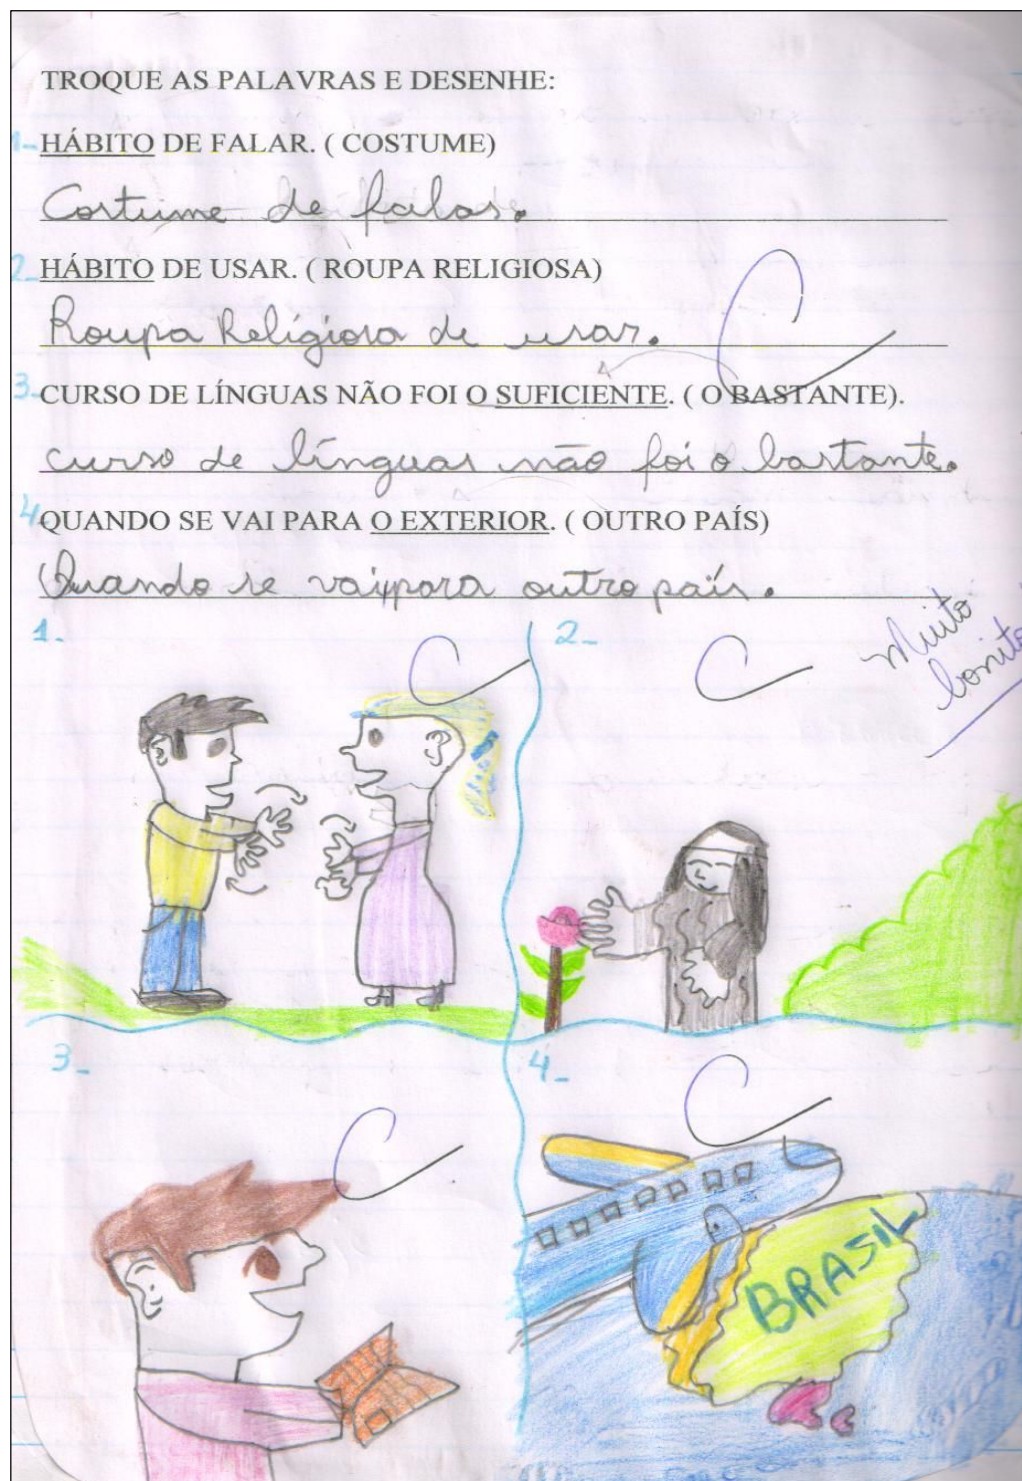 TROQUE AS PALAVRAS E DESENHE:
1- HÁBITO DE FALAR. ( COSTUME)
Costume de falar.
2- HÁBITO DE USAR. ( ROUPA RELIGIOSA)
Roupa Religiosa de usar.
3- CURSO DE LÍNGUAS NÃO FOI O SUFICIENTE. ( O BASTANTE).
curso de línguas não foi o bastante.
4 QUANDO SE VAI PARA O EXTERIOR. ( OUTRO PAÍS)
Quando se vai para outro país.
1- C 2- C Muito
bonito
3- C 4- C
BRASIL